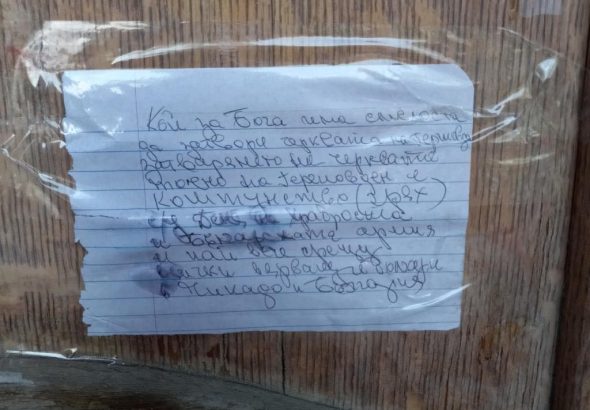 Кой за Бога има смелоста
да затвори църквата на Гергьовд
затварянето на черквата
точно на Гергьовден е
кощунство (грях)
Ден на храбростта
и Българската армия
и най вече срещу
всички вярващи българи
в Чикадо и България